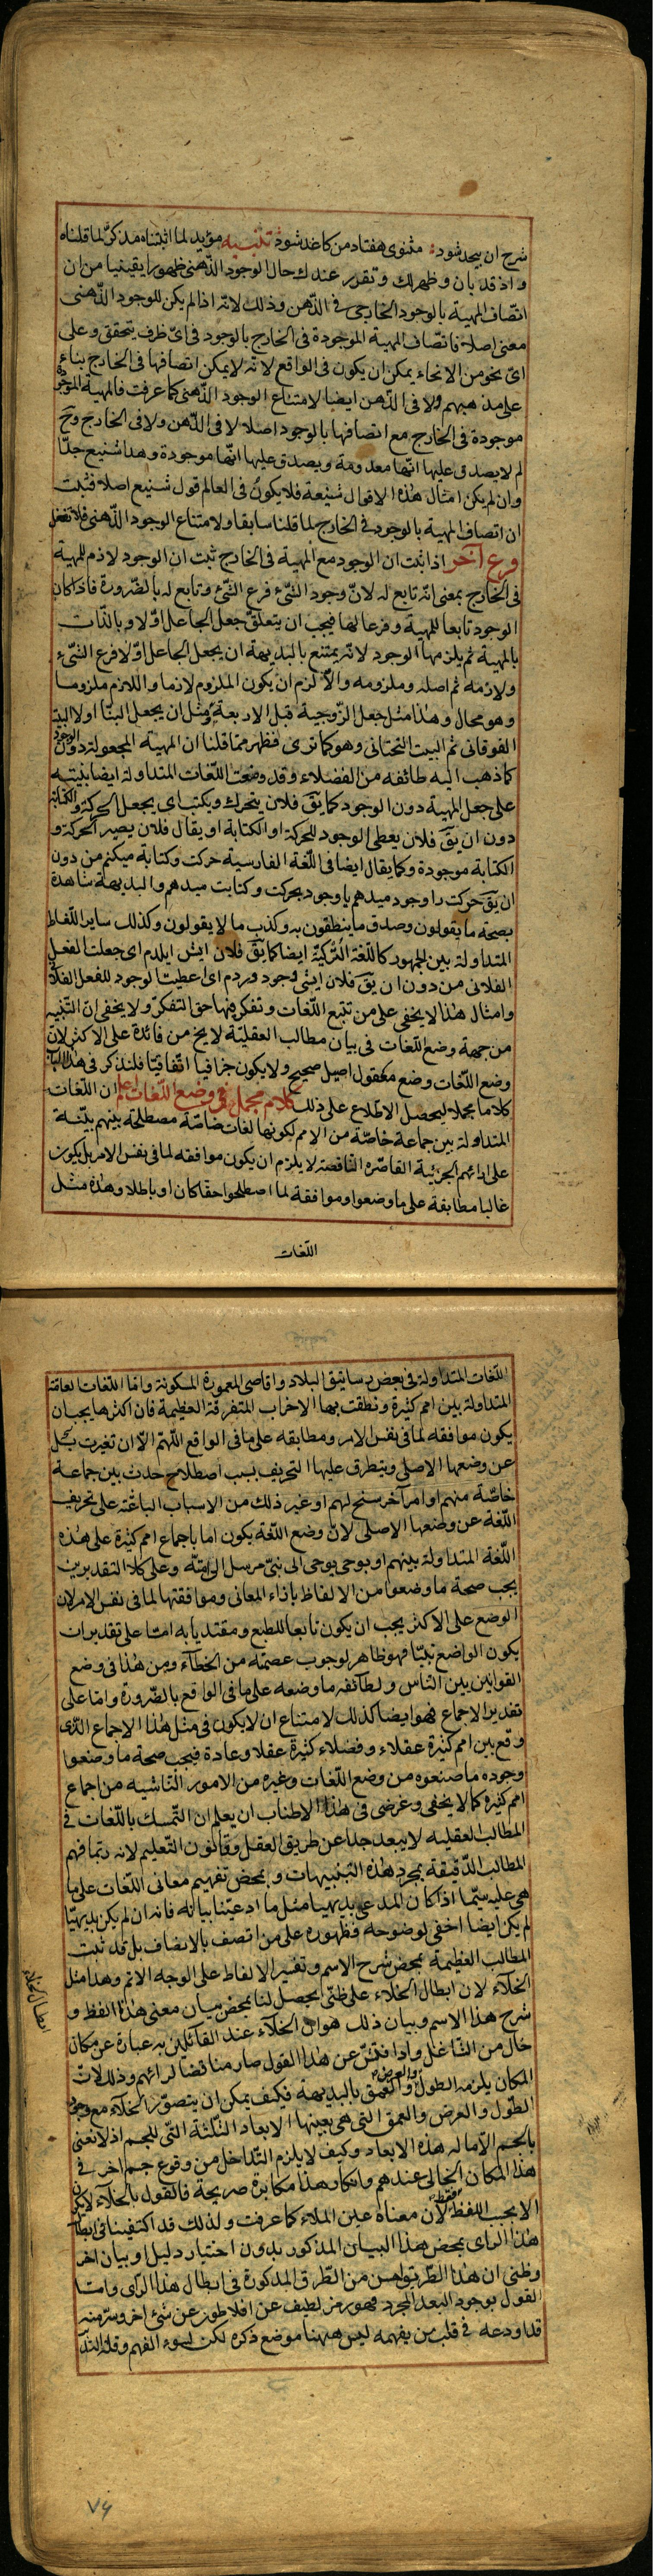 شرح ان بیحد شود؛ مثنوی هفتاد من کاغد شود تنبیه مؤید لما اثبتناه مذکر لما قلناه
واذ قد بان وظهر لك وتقرر عندك حال الوجود الذهنی ظهورا یقینیا من ان
اتصاف المهیة بالوجود الخارجی فی الذهن وذلك لانه اذا لم یکن للوجود الذهنی
معنی اصلا فاتصاف المهیة الموجودة فی الخارج بالوجود فی ای ظرف یتحقق وعلی
ای نحو من الانحاء یمکن ان یکون فی الواقع لانه لا یمکن اتصافها فی الخارج بناء
علی مذهبهم ولا فی الذهن ایضا لامتناع الوجود الذهنی کما عرفت فالمهیة الموجودة
موجودة فی الخارج مع اتصافها بالوجود اصلا لا فی الذهن ولا فی الخارج وح
لم لا یصدق علیها انها معدومة ویصدق علیها انها موجودة وهذا شنیع جدا
وان لم یکن امثال هذه الاقوال شنیعة فلا یکون فی العالم قول شنیع اصلا فثبت
ان اتصاف المهیة بالوجود فی الخارج لما قلنا سابقا ولامتناع الوجود الذهنی فلا تغفل
فرع آخر اذا ثبت ان الوجود مع المهیة فی الخارج ثبت ان الوجود لازم للمهیة
فی الخارج بمعنی انه تابع له لان وجود الشیء فرع الشیء وتابع له بالضرورة فاذا کان
الوجود تابعا للمهیة وفرعا لها فیجب ان یتعلق جعل الجاعل اولا وبالذات
بالمهیة ثم یلزمها الوجود لانه یمتنع بالبدیهة ان یجعل الجاعل اولا فرع الشیء
ولازمه ثم اصله وملزومه والا لزم ان یکون الملزوم لازما واللازم ملزوما
وهو محال وهذا مثل جعل الزوجیة قبل الاربعة ومثل ان یجعل البنّا اولا البیت
الفوقانی ثم البیت التحتانی وهو کما تری فظهر مما قلنا ان المهیة المجعولة دون الوجود
کما ذهب الیه طائفه من الفضلاء وقد وضعت اللغات المتداولة ایضا بنیته
علی جعل المهیة دون الوجود کما یق فلان یتحرك ویکتب ای یجعل الحرکة والکتابة
دون ان یق فلان یعطی الوجود للحرکة او الکتابة او یقال فلان یصیر الحرکة و
الکتابة موجودة وکما یقال ایضا فی اللغة الفارسیة حرکت وکتابة میکنم من دون
ان یق حرکت را وجود میدهم یا وجود بحرکت وکتابت میدهم والبدیهة شاهدة
بصحة ما یقولون وصدق ما ینطقون به وکذب ما لا یقولون وکذلك سایر اللغات
المتداولة بین الجمهور کاللغة الترکیة ایضا کما یق فلان ایش ایلدم ای جعلت الفعل
الفلانی من دون ان یق فلان ایشی وجود وردم ای اعطیت الوجود للفعل الفلانی
وامثال هذا لا یخفی علی من تتبع اللغات وتفکر فیها حق التفکر ولا یخفی ان التنبیه
من جهة وضع اللغات فی بیان مطالب العقلیة لا یخ من فائدة علی الاکثر لان
وضع اللغات وضع معقول اصیل صحیح ولا یکون جزافیا اتفاقیا فلنذکر فی هذا الباب
کلاما مجملا لیحصل الاطلاع علی ذلك کلام مجمل فی وضع اللغات اعلم ان اللغات
المتداولة بین جماعة خاصة من الامم لکونها لغات خاصة مصطلحة بینهم بنیة
علی ارائهم الجزئیة القاصره الناقصة لا یلزم ان یکون موافقه لما فی نفس الامر بل یکون
غالبا مطابقة علی ما وضعوا وموافقة لما اصطلحوا حقا کان او باطلا وهذه مثل
اللغات
اللغات المتداولة فی بعض رساتیق البلاد واقاصی المعمورة المسکونة واما اللغات العامة
المتداولة بین امم کثیرة ونطقت بها الاحزاب المتفرقة العظیمة فان اکثرها یجب ان
یکون موافقه لما فی نفس الامر ومطابقه علی ما فی الواقع اللهم الا ان تغیرت بکل
عن وضعها الاصلی ویتطرق علیها التحریف بسبب اصطلاح حدث بین جماعة
خاصة منهم او امر آخر سنح لهم او غیر ذلك من الاسباب الباعثه علی تحریف
اللغة عن وضعها الاصلی لان وضع اللغة یکون اما باجماع امم کثیرة علی هذه
اللغة المتداولة بینهم او بوحی یوحی الی نبی مرسل الی امته وعلی کلا التقدیرین
یجب صحة ما وضعوا من الالفاظ بازاء المعانی وموافقتها لما فی نفس الامر لان
الوضع علی الاکثر یجب ان یکون تابعا للطبع ومقتدیا به اما علی تقدیر ان
یکون الواضع نبیا فهو ظاهر لوجوب عصمته من الخطاء ومن هذا فی وضع
القوانین بین الناس ولطائفه ما وضعه علی ما فی الواقع بالضرورة واما علی
تقدیر الاجماع فهو ایضا کذلك لامتناع ان لا یکون فی مثل هذا الاجماع الذی
وقع بین امم کثیرة عقلاء وفضلاء کثیرة عقلا وعادة فیجب صحة ما وضعوا
وجوده ما صنعوه من وضع اللغات وغیره من الامور الناشیه من اجماع
امم کثیره کما لا یخفی وغرضی فی هذا الاطناب ان یعلم ان التمسك باللغات فی
المطالب العقلیه لا یبعد جدا عن طریق العقل وقانون التعلیم لانه ربما فهم
المطالب الدقیقة بمجرد هذه التنبیهات وبمحض تفهیم معانی اللغات علی ما
هی علیه سیما اذا کان المدعی بدیهیا مثل ما ادعیتنا بیانه فانه ان لم یکن بدیهیا
لم یکن ایضا اخفی لوضوحه وظهوره علی من اتصف بالانصاف بل قد ثبت
المطالب العظیمة بمحض شرح الاسم وتفسیر الالفاظ علی الوجه الاتم وهذا مثل
الخلاء لان ابطال الخلاء علی ظنی یحصل لنا بمحض بیان معنی هذا اللفظ و
شرح هذا الاسم وبیان ذلك هو ان الخلاء عند القائلین به عبارة عن مکان
خال من الشاغل واذا فتش عن هذا القول صار مناقضا لرائهم وذلك لان
المکان یلزمه الطول والعرض والعمق بالبدیهة فکیف یمکن ان یتصور الخلاء مع وجود
الطول والعرض والعمق التی هی بعینها الابعاد الثلثة التی للجسم اذ لا نعنی
بالجسم الا ما له هذه الابعاد وکیف لا یلزم التداخل من وقوع جسم اخر فی
هذا المکان الخالی عندهم وانکار هذا مکابرة صریحة فالقول بالخلاء لا یکون
الا بحسب اللفظ فقط لان معناه عین الملاء کما عرفت ولذلك قد اکتفینا فی ابطال
هذا الرای بمحض هذا البیان المذکور بدون اختیار دلیل او بیان اخر
وظنی ان هذا الطریق احسن من الطرق المذکورة فی ابطال هذا الرای واما
القول بوجود البعد المجرد فهو رمز لطیف عن افلاطون عن شیء اخر وسر منه
قد اودعه فی قلب من یفهمه لیس ههنا موضع ذکره لکن لسوء الفهم وقلة التدبر
ابطال الخلاء
٧٤